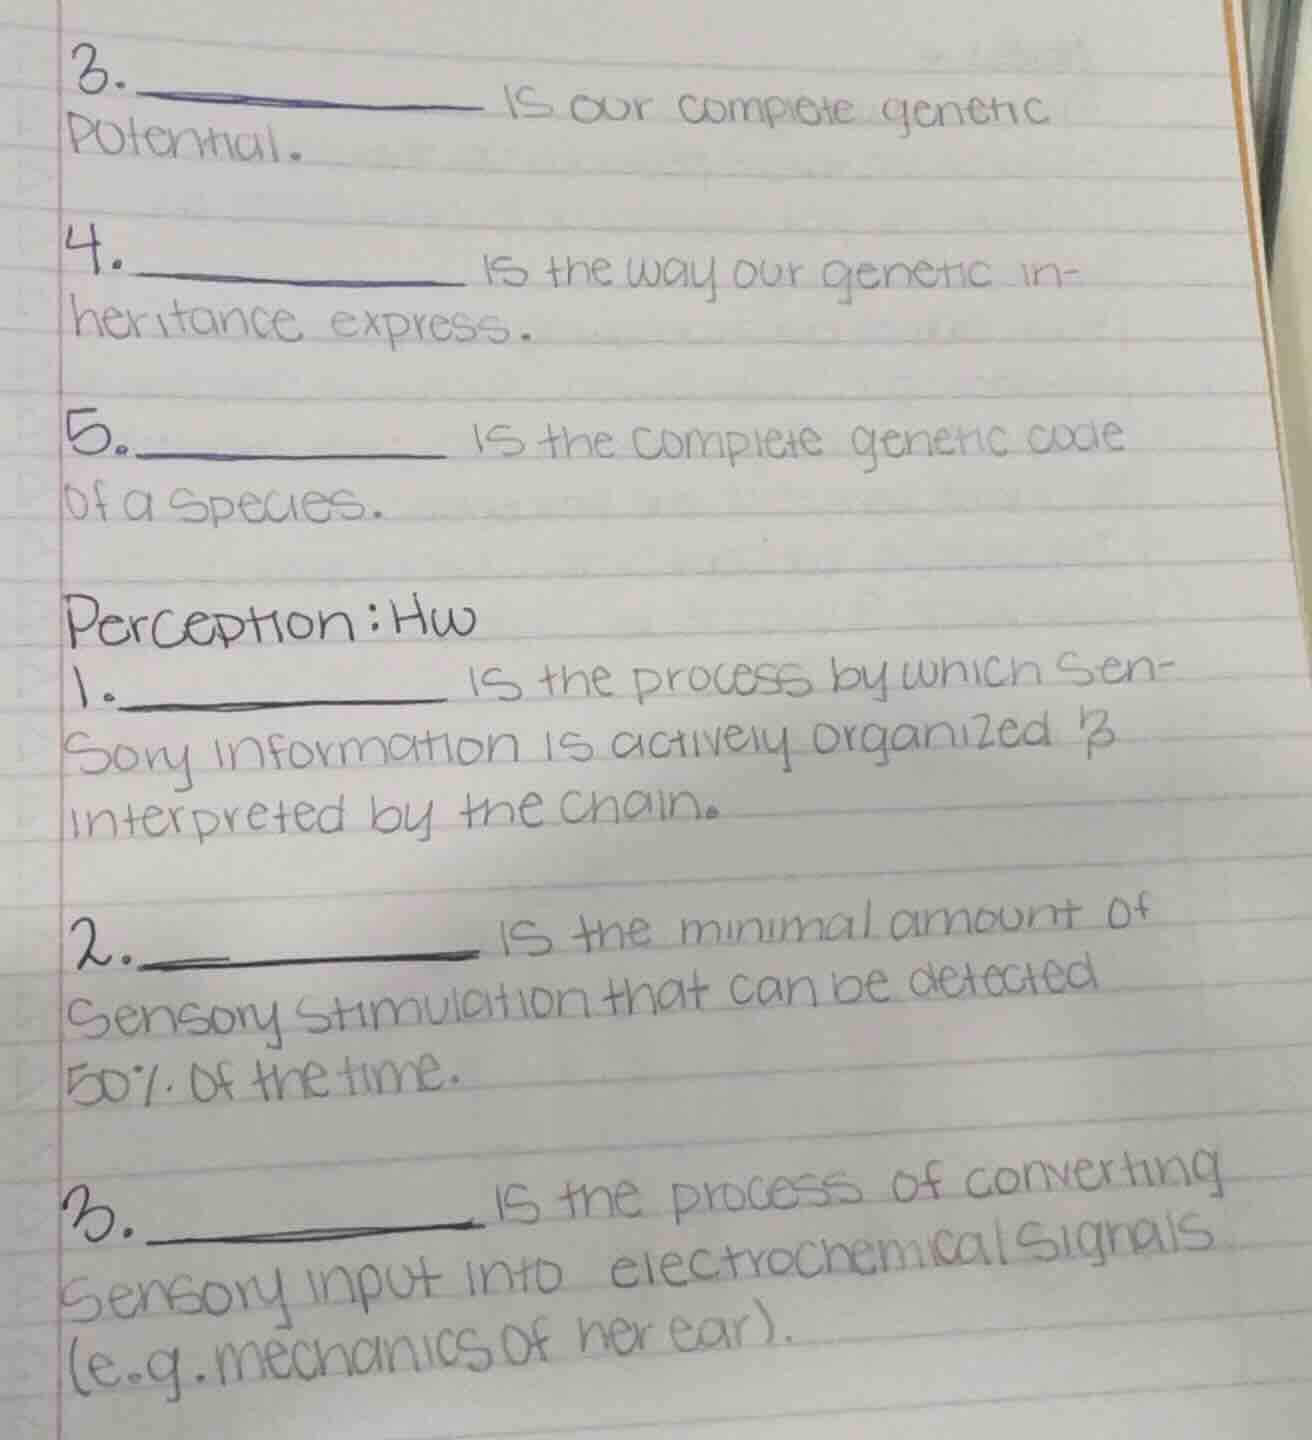 3. __________ is our complete genetic
Potential.
4. __________ is the way our genetic in-
heritance express.
5. __________ is the complete genetic code
of a species.
Perception: HW
1. __________ is the process by which sen-
sory information is actively organized &
interpreted by the chain.
2. __________ is the minimal amount of
sensory stimulation that can be detected
50% of the time.
3. __________ is the process of converting
sensory input into electrochemical signals
(e.g. mechanics of her ear).